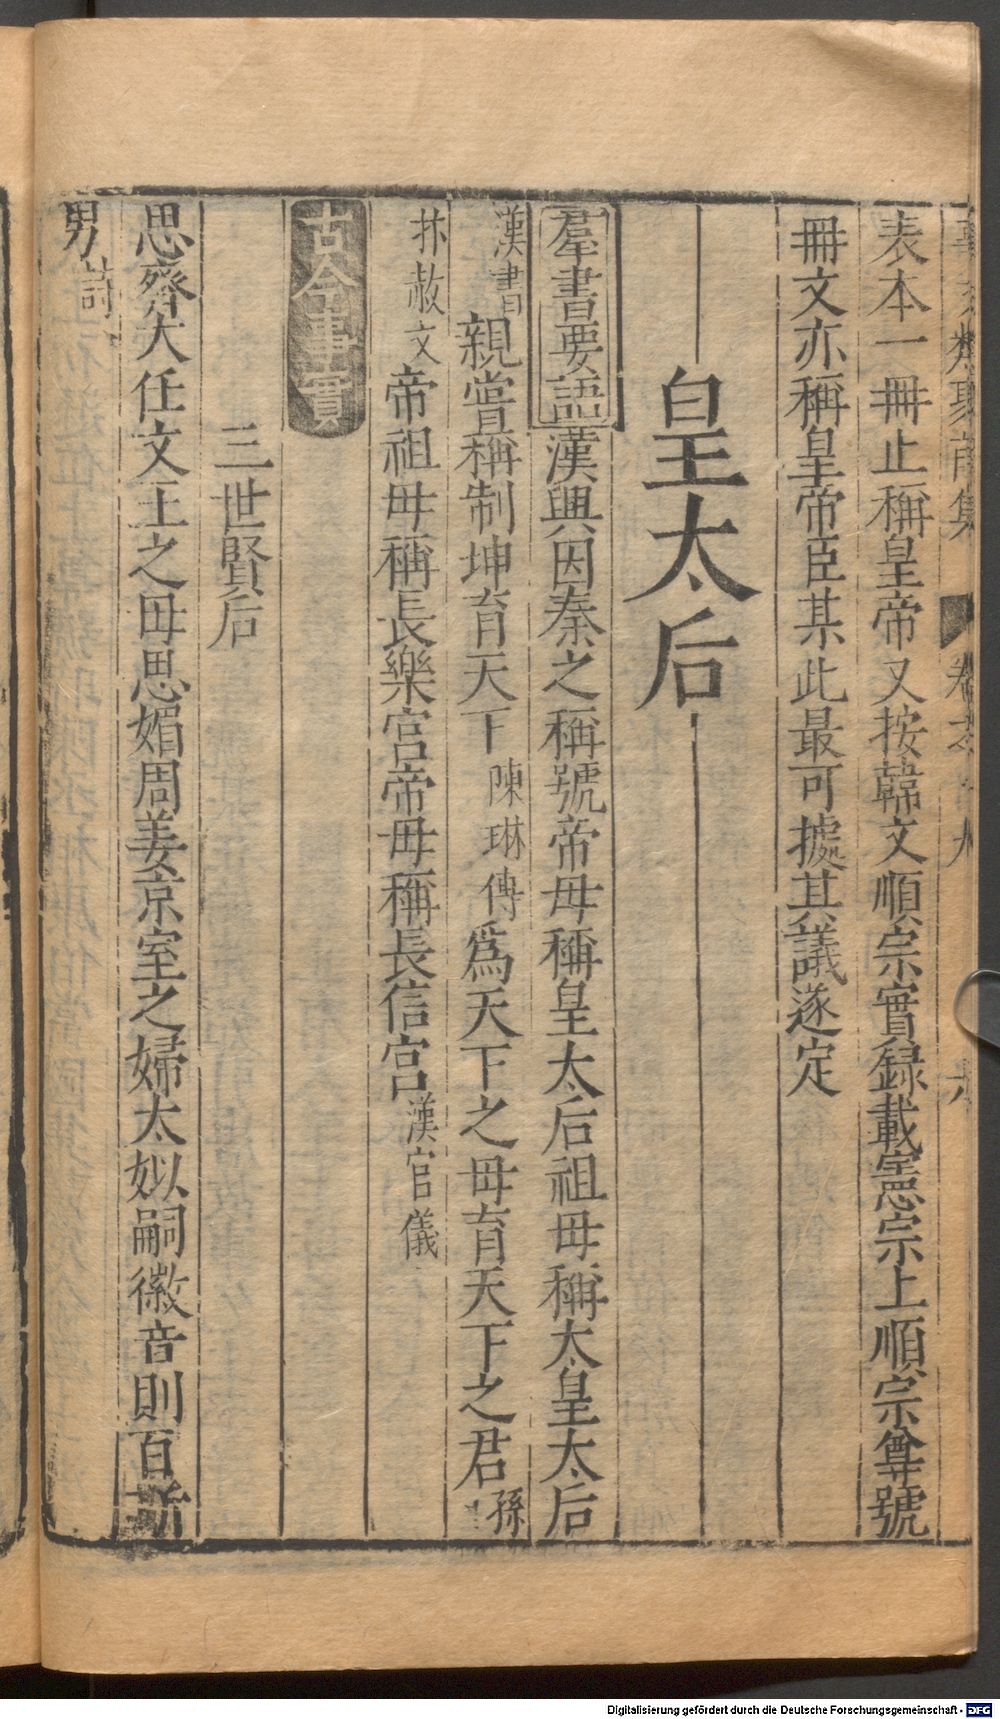 類聚前集 卷六
表本一冊止稱皇帝又按韓文順宗實録載憲宗上順宗尊號
冊文亦稱皇帝臣某此最可據其議遂定
皇太后
羣書要語漢興因秦之稱號帝母稱皇太后祖母稱太皇太后
漢書親嘗稱制坤育天下陳琳傳為天下之母育天下之君孫
抃赦文帝祖母稱長樂宮帝母稱長信宮漢官儀
古今事實
三世賢后
思齊大任文王之母思媚周姜京室之婦太姒嗣徽音則百斯
男詩
Digitalisierung gefördert durch die Deutsche Forschungsgemeinschaft - DFG